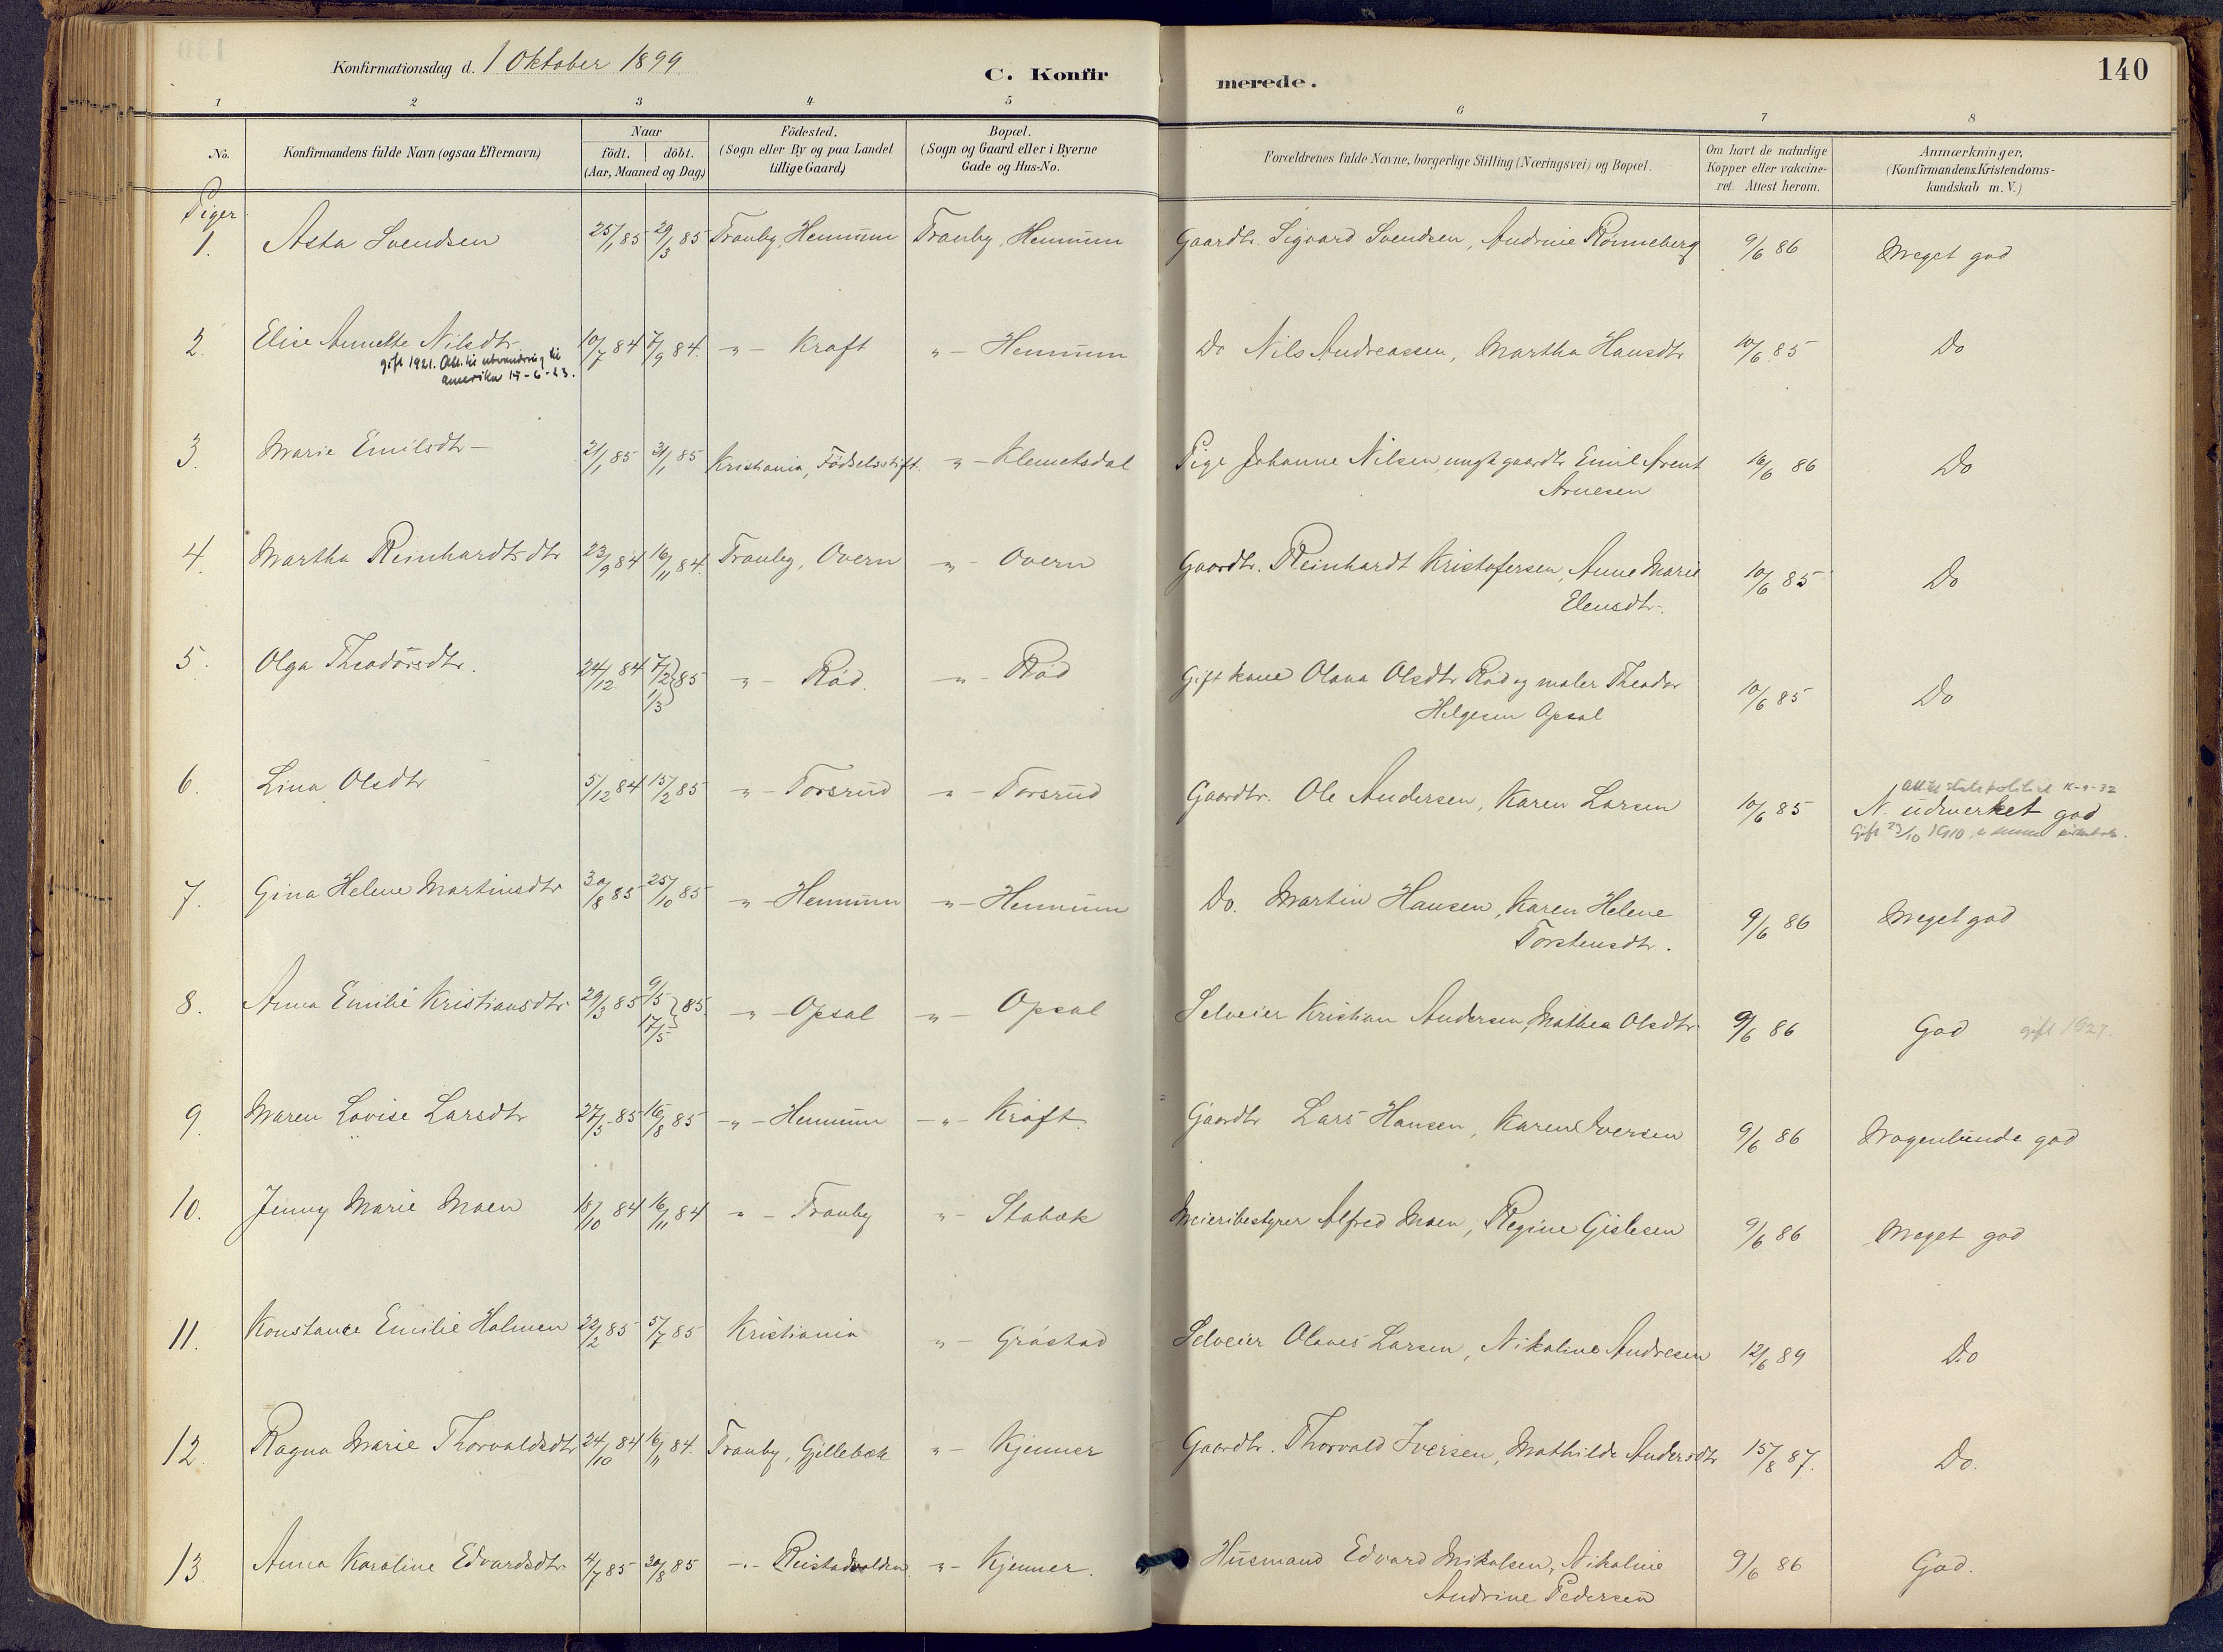 Konfirmationsdag d. 1 Oktober 1899.
C. Konfirmerede.
140
1 2 3 4 5 6 7 8
No.
Konfirmandens fulde Navn (ogsaa Efternavn)
Naar
födt. döbt.
(Aar, Maaned og Dag)
Födested.
(Sogn eller By og paa Landet
tillige Gaard)
Bopæl.
(Sogn og Gaard eller i Byerne
Gade og Hus-No.
Forældrenes fulde Navne, borgerlige Stilling (Næringsvei) og Bopæl.
Om havt de naturlige
Kopper eller vakcine-
ret. Attest herom.
Anmærkninger,
(Konfirmandens Kristendoms-
kundskab m. V.)
Piger
1. Asta Svendsen 25/1 85 29/3 85 Tranby, Hennum Tranby, Hennum Gaardbr. Sigvard Svendsen, Andrine Rønneberg 9/6 86 Meget god
2. Elise Annette Nilsdtr 10/7 84 7/9 84. -"- Kraft "- Hennum Do Nils Andreassen, Martha Hansdtr 10/6 85 Do
gift 1921. Att. til utvandring til
amerika 15-6-23.
3. Marie Emilsdtr - 21/1 85 31/1 85 Kristiania, Födselsstift. "- Klemetsdal Pige Johanne Nilsen, ungk gaardbr Emil Arent 16/6 86 Do
Arnesen
4. Martha Reinhardtsdtr 23/9 84 16/11 84. Tranby, Overn "- Overn Gaardbr. Reinhardt Kristofersen, Anne Marie 10/6 85 Do
Elensdtr.
5. Olga Theodorsdtr. 24/12 84 7/2 1/3 } 85 "- Röd. -"- Röd Gift kone Olava Olsdtr Röd og maler Theodor 10/6 85 Do
Helgesen Opsal
6. Lina Olsdtr 5/12 84 15/2 85 "- Torsrud "- Torsrud Gaardbr. Ole Andersen, Karen Larsen 10/6 85 N. udmerket god
Gift 23/10 1910
7. Gina Helene Martinsdtr 30/8 85 25/10 85 "- Hennum "- Hennum Do. Martin Hansen, Karen Helene 9/6 86 Meget god
Torstensdtr.
8. Anna Emilie Kristiansdtr 29/3 85 9/5 17/5 } 85. "- Opsal "- Opsal Selveier Kristian Andersen, Mathea Olsdtr. 9/6 86 God gift 1927.
9. Maren Lovise Larsdtr 27/5 85 16/8 85 -"- Hennum -"- Kraft Gaardbr Lars Hansen, Karen Iversen 9/6 86 Nogenlunde god
10. Jenny Marie Moen 18/10 84 16/11 84 "- Tranby "- Stabæk Meieribestyrer Alfred Moen, Regine Gislesen 9/6 86 Meget god
11. Konstance Emilie Holmen 22/2 85 5/7 85 Kristiania "- Gråstad Selveier Olaves Larsen, Nikoline Andresen 12/6 89 Do
12. Ragna Marie Thorvaldsdtr 24/10 84 16/11 84. Tranby, Gjellebæk "- Kjenner Gaardbr. Thorvald Iversen, Mathilde Andersdtr 15/8 87. Do.
13. Anna Karoline Edvardsdtr. 4/7 85 30/8 85 -"- Reistadvolden "- Kjenner. Husmand Edvard Mikalsen, Nikoline 9/6 86 God.
Andrine Pedersen